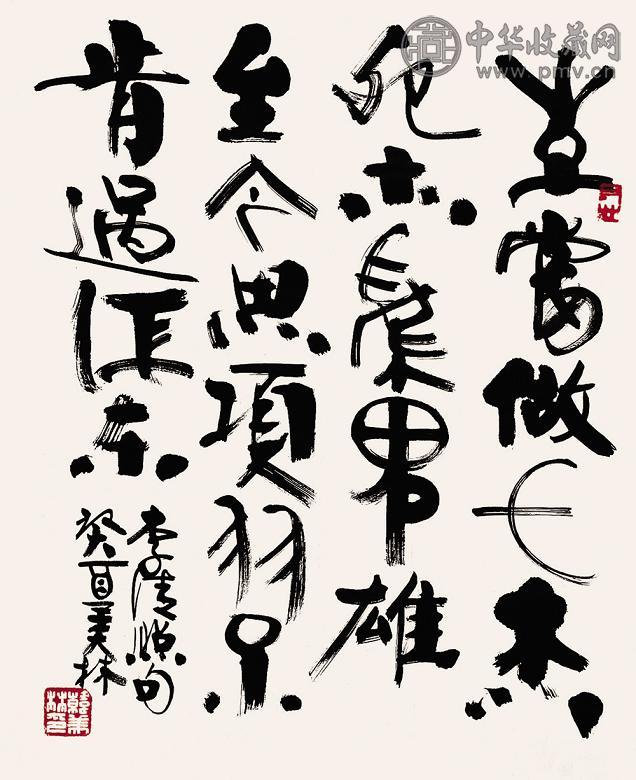 生當做人杰
死亦為鬼雄
至今思項羽不
肯過江東
李清照句
癸酉美林
韓美林印
中华收藏网
www.pmv.cn